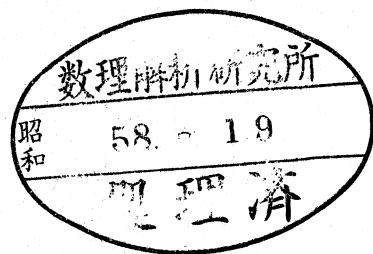 数理解析研究所
昭和 58. - 19
理済